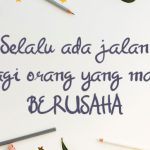 Selalu ada jalan
agi orang yang ma
BERUSAHA